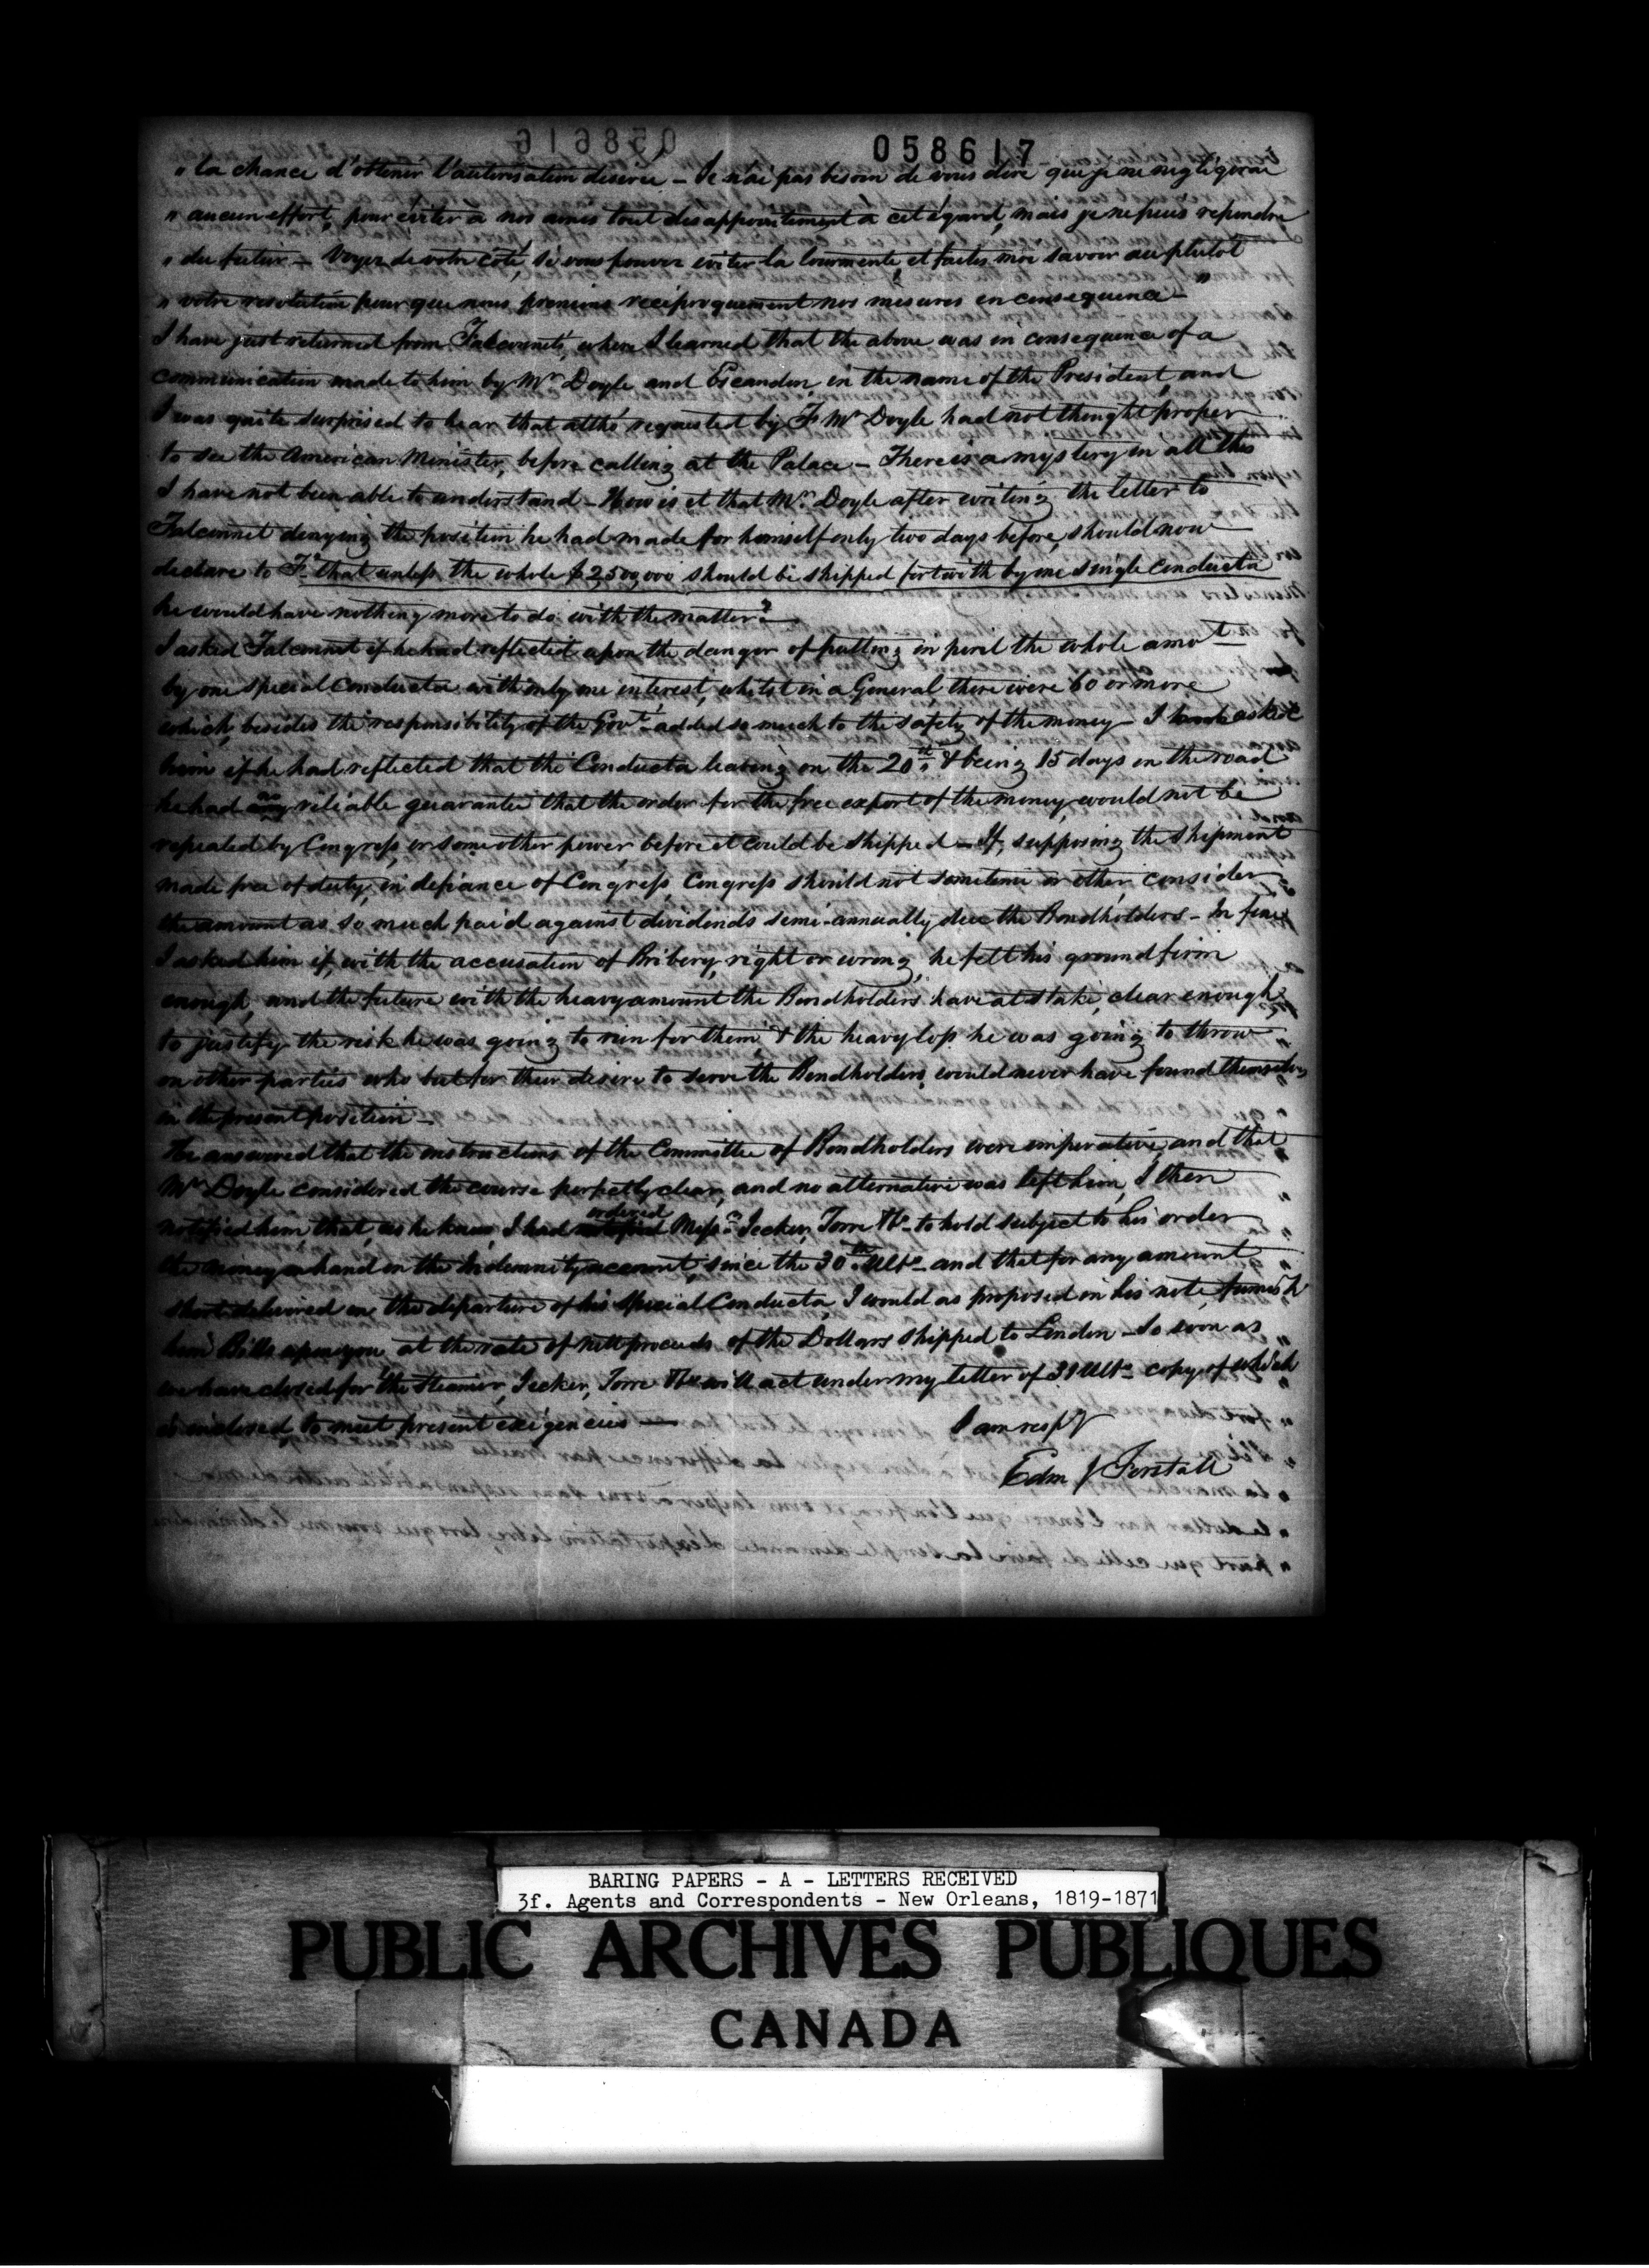 058617
" la chance d'obtenir l'autorisation desirée – Je n'ai pas besoin de vous dire que je ne negligerai
" aucun effort, pour éviter à nos amis tout desappointement à cet égard, mais je ne puis repondre
" du futur – Voyez de votre coté, si vous pouvez eviter la tourmente, et faites moi savoir au plutôt
" votre resolution pour que nous prenions reciproquement nos mesures en consequence – "
I have just returned from Falconnet's, where I learned that the above was in consequence of a
communication made to him by Mr Doyle and Escandon, in the name of the President, and
I was quite surprised to hear that altho' requested by F. Mr Doyle had not thought proper
to see the American Minister, before calling at the Palace – There is a mystery in all this
I have not been able to understand – How is it that Mr. Doyle after writing the letter to
Falconnet denying the position he had made for himself only two days before, should now
declare to F. that unless the whole $2,500,000 should be shipped fortwith by one single Conducta
he would have nothing more to do with the matter?
I asked Falconnet if he had reflected upon the danger of putting in peril the whole amot
by one special Conducta with only one interest, whilst in a General, there were 60 or more
which, besides the responsibility of the Govt. added so much to the safety of the money – I asked
him if he had reflected that the Conducta leaving on the 20th. & being 15 days on the road
he had any reliable guarantee that the order for the free export of the money, would not be
repealed by Congress, or some other power before it could be shipped – If, supposing the shipment
made free of duty, in defiance of Congress, Congress should not sometime or other, consider
the amount as so much paid against dividends semi-annually due the Bondholders – In fine
I asked him if, with the accusation of Bribery, right or wrong, he felt his ground firm
enough, and the future with the heavy amount the Bondholders have at stake, clear enough,
to justify the risk he was going to run for them, & the heavy loss he was going to throw
on other parties who but for their desire to serve the Bondholders, would never have found themselves
in the present position –
He answered that the instructions of the Committee of Bondholders were imperative, and that
Mr Doyle considered the course perfectly clear, and no alternative was left him, I then
notified him that, as he knew, I had ordered Messrs Jecker, Torre & Co to hold subject to his order
the money on hand on the Indemnity account, since the 30th. Ulto – and that for any amount
short delivered on the departure of his special Conducta, I would as proposed in his note, furnish
him Bills upon you at the rate of nett proceeds of the Dollars shipped to London – So soon as
we have closed for the steamer, Jecker, Torre & Co will act under my letter of 31 Ulto – copy of which
is inclosed, to meet present exigencies –
I am respy
Edm J Forstall
BARING PAPERS - A - LETTERS RECEIVED
3f. Agents and Correspondents - New Orleans, 1819-1871
PUBLIC ARCHIVES PUBLIQUES
CANADA